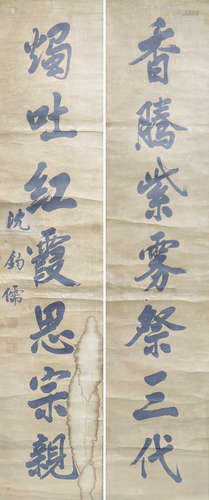 香騰紫雾祭三代
燭吐紅霞思宗親
沈鈞儒